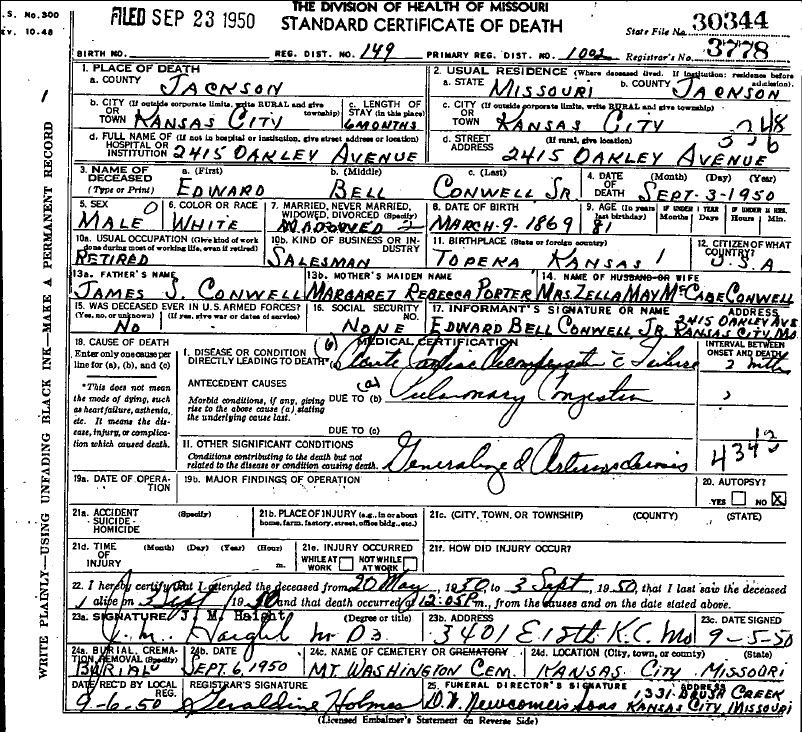 THE DIVISION OF HEALTH OF MISSOURI
S. No. 300
FILED SEP 23 1950 STANDARD CERTIFICATE OF DEATH State File No. 30344
EV. 10-48
BIRTH NO. REG. DIST. NO. 149 PRIMARY REG. DIST. NO. 1002 Registrar's No. 3778
1. PLACE OF DEATH
a. COUNTY JACKSON
2. USUAL RESIDENCE (Where deceased lived. If institution: residence before admission).
a. STATE MISSOURI b. COUNTY JACKSON
b. CITY (If outside corporate limits, write RURAL and give township) OR TOWN KANSAS CITY
c. LENGTH OF STAY (in this place) 6 MONTHS
c. CITY (If outside corporate limits, write RURAL and give township) OR TOWN KANSAS CITY
d. FULL NAME OF (If not in hospital or institution, give street address or location) HOSPITAL OR INSTITUTION 2415 OAKLEY AVENUE
d. STREET ADDRESS (If rural, give location) 2415 OAKLEY AVENUE
3. NAME OF DECEASED (Type or Print) a. (First) EDWARD b. (Middle) BELL c. (Last) CONWELL SR.
4. DATE OF DEATH (Month) (Day) (Year) SEPT-3-1950
5. SEX MALE
6. COLOR OR RACE WHITE
7. MARRIED, NEVER MARRIED, WIDOWED, DIVORCED (Specify) 2
8. DATE OF BIRTH MARCH-9-1869
9. AGE (In years last birthday) 81 IF UNDER 1 YEAR Months Days IF UNDER 24 HRS. Hours Min.
10a. USUAL OCCUPATION (Give kind of work done during most of working life, even if retired) RETIRED
10b. KIND OF BUSINESS OR INDUSTRY SALESMAN
11. BIRTHPLACE (State or foreign country) TOPEKA KANSAS 1
12. CITIZEN OF WHAT COUNTRY? U.S.A
13a. FATHER'S NAME JAMES S. CONWELL
13b. MOTHER'S MAIDEN NAME MARGARET REBECCA PORTER
14. NAME OF HUSBAND OR WIFE MRS. ZELLA MAY McCABE CONWELL
15. WAS DECEASED EVER IN U.S. ARMED FORCES? (Yes, no, or unknown) (If yes, give war or dates of service) NO
16. SOCIAL SECURITY NO. NONE
17. INFORMANT'S SIGNATURE OR NAME ADDRESS EDWARD BELL CONWELL JR. 2415 OAKLEY AVE KANSAS CITY, MO.
18. CAUSE OF DEATH
Enter only one cause per line for (a), (b), and (c)
MEDICAL CERTIFICATION
INTERVAL BETWEEN ONSET AND DEATH
I. DISEASE OR CONDITION DIRECTLY LEADING TO DEATH* (a) (b) Acute Cardiac Decompensation c Failure
*This does not mean the mode of dying, such as heart failure, asthenia, etc. It means the disease, injury, or complication which caused death.
ANTECEDENT CAUSES
Morbid conditions, if any, giving rise to the above cause (a) stating the underlying cause last.
DUE TO (b) (a) Pulmonary Congestion
DUE TO (c)
II. OTHER SIGNIFICANT CONDITIONS
Conditions contributing to the death but not related to the disease or condition causing death. Generalized Arteriosclerosis
19a. DATE OF OPERATION
19b. MAJOR FINDINGS OF OPERATION
20. AUTOPSY? YES NO X
21a. ACCIDENT SUICIDE HOMICIDE (Specify)
21b. PLACE OF INJURY (e.g., in or about home, farm, factory, street, office bldg., etc.)
21c. (CITY, TOWN, OR TOWNSHIP) (COUNTY) (STATE)
21d. TIME OF INJURY (Month) (Day) (Year) (Hour) m.
21e. INJURY OCCURRED WHILE AT WORK NOT WHILE AT WORK
21f. HOW DID INJURY OCCUR?
22. I hereby certify that I attended the deceased from 20 May, 1950, to 3 Sept, 1950, that I last saw the deceased
alive on 3 Sept 1950 and that death occurred at 12:05P m., from the causes and on the date stated above.
23a. SIGNATURE J. M. Haight (Degree or title) J. M. Haight
23b. ADDRESS 3401 E 18th K.C. Mo
23c. DATE SIGNED 9-5-50
24a. BURIAL, CREMATION, REMOVAL (Specify) BURIAL
24b. DATE SEPT. 6, 1950
24c. NAME OF CEMETERY OR CREMATORY MT. WASHINGTON CEM.
24d. LOCATION (City, town, or county) (State) KANSAS CITY MISSOURI
DATE REC'D BY LOCAL REG. 9-6-50
REGISTRAR'S SIGNATURE Geraldine Holmes
25. FUNERAL DIRECTOR'S SIGNATURE ADDRESS D. W. Newcomer's Sons 1331 BRUSH CREEK KANSAS CITY, MISSOURI
(Licensed Embalmer's Statement on Reverse Side)
WRITE PLAINLY—USING UNFADING BLACK INK—MAKE A PERMANENT RECORD